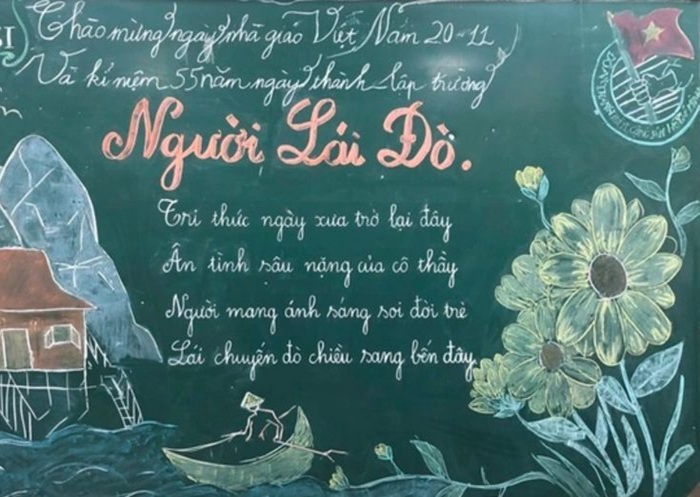 Chào mừng ngày nhà giáo Việt Nam 20-11
Và kỉ niệm 55 năm ngày thành lập trường
Người Lái Đò.
Tri thức ngày xưa trở lại đây
Ân tình sâu nặng của cô thầy
Người mang ánh sáng soi đời trẻ
Lái chuyến đò chiều sang bến đây